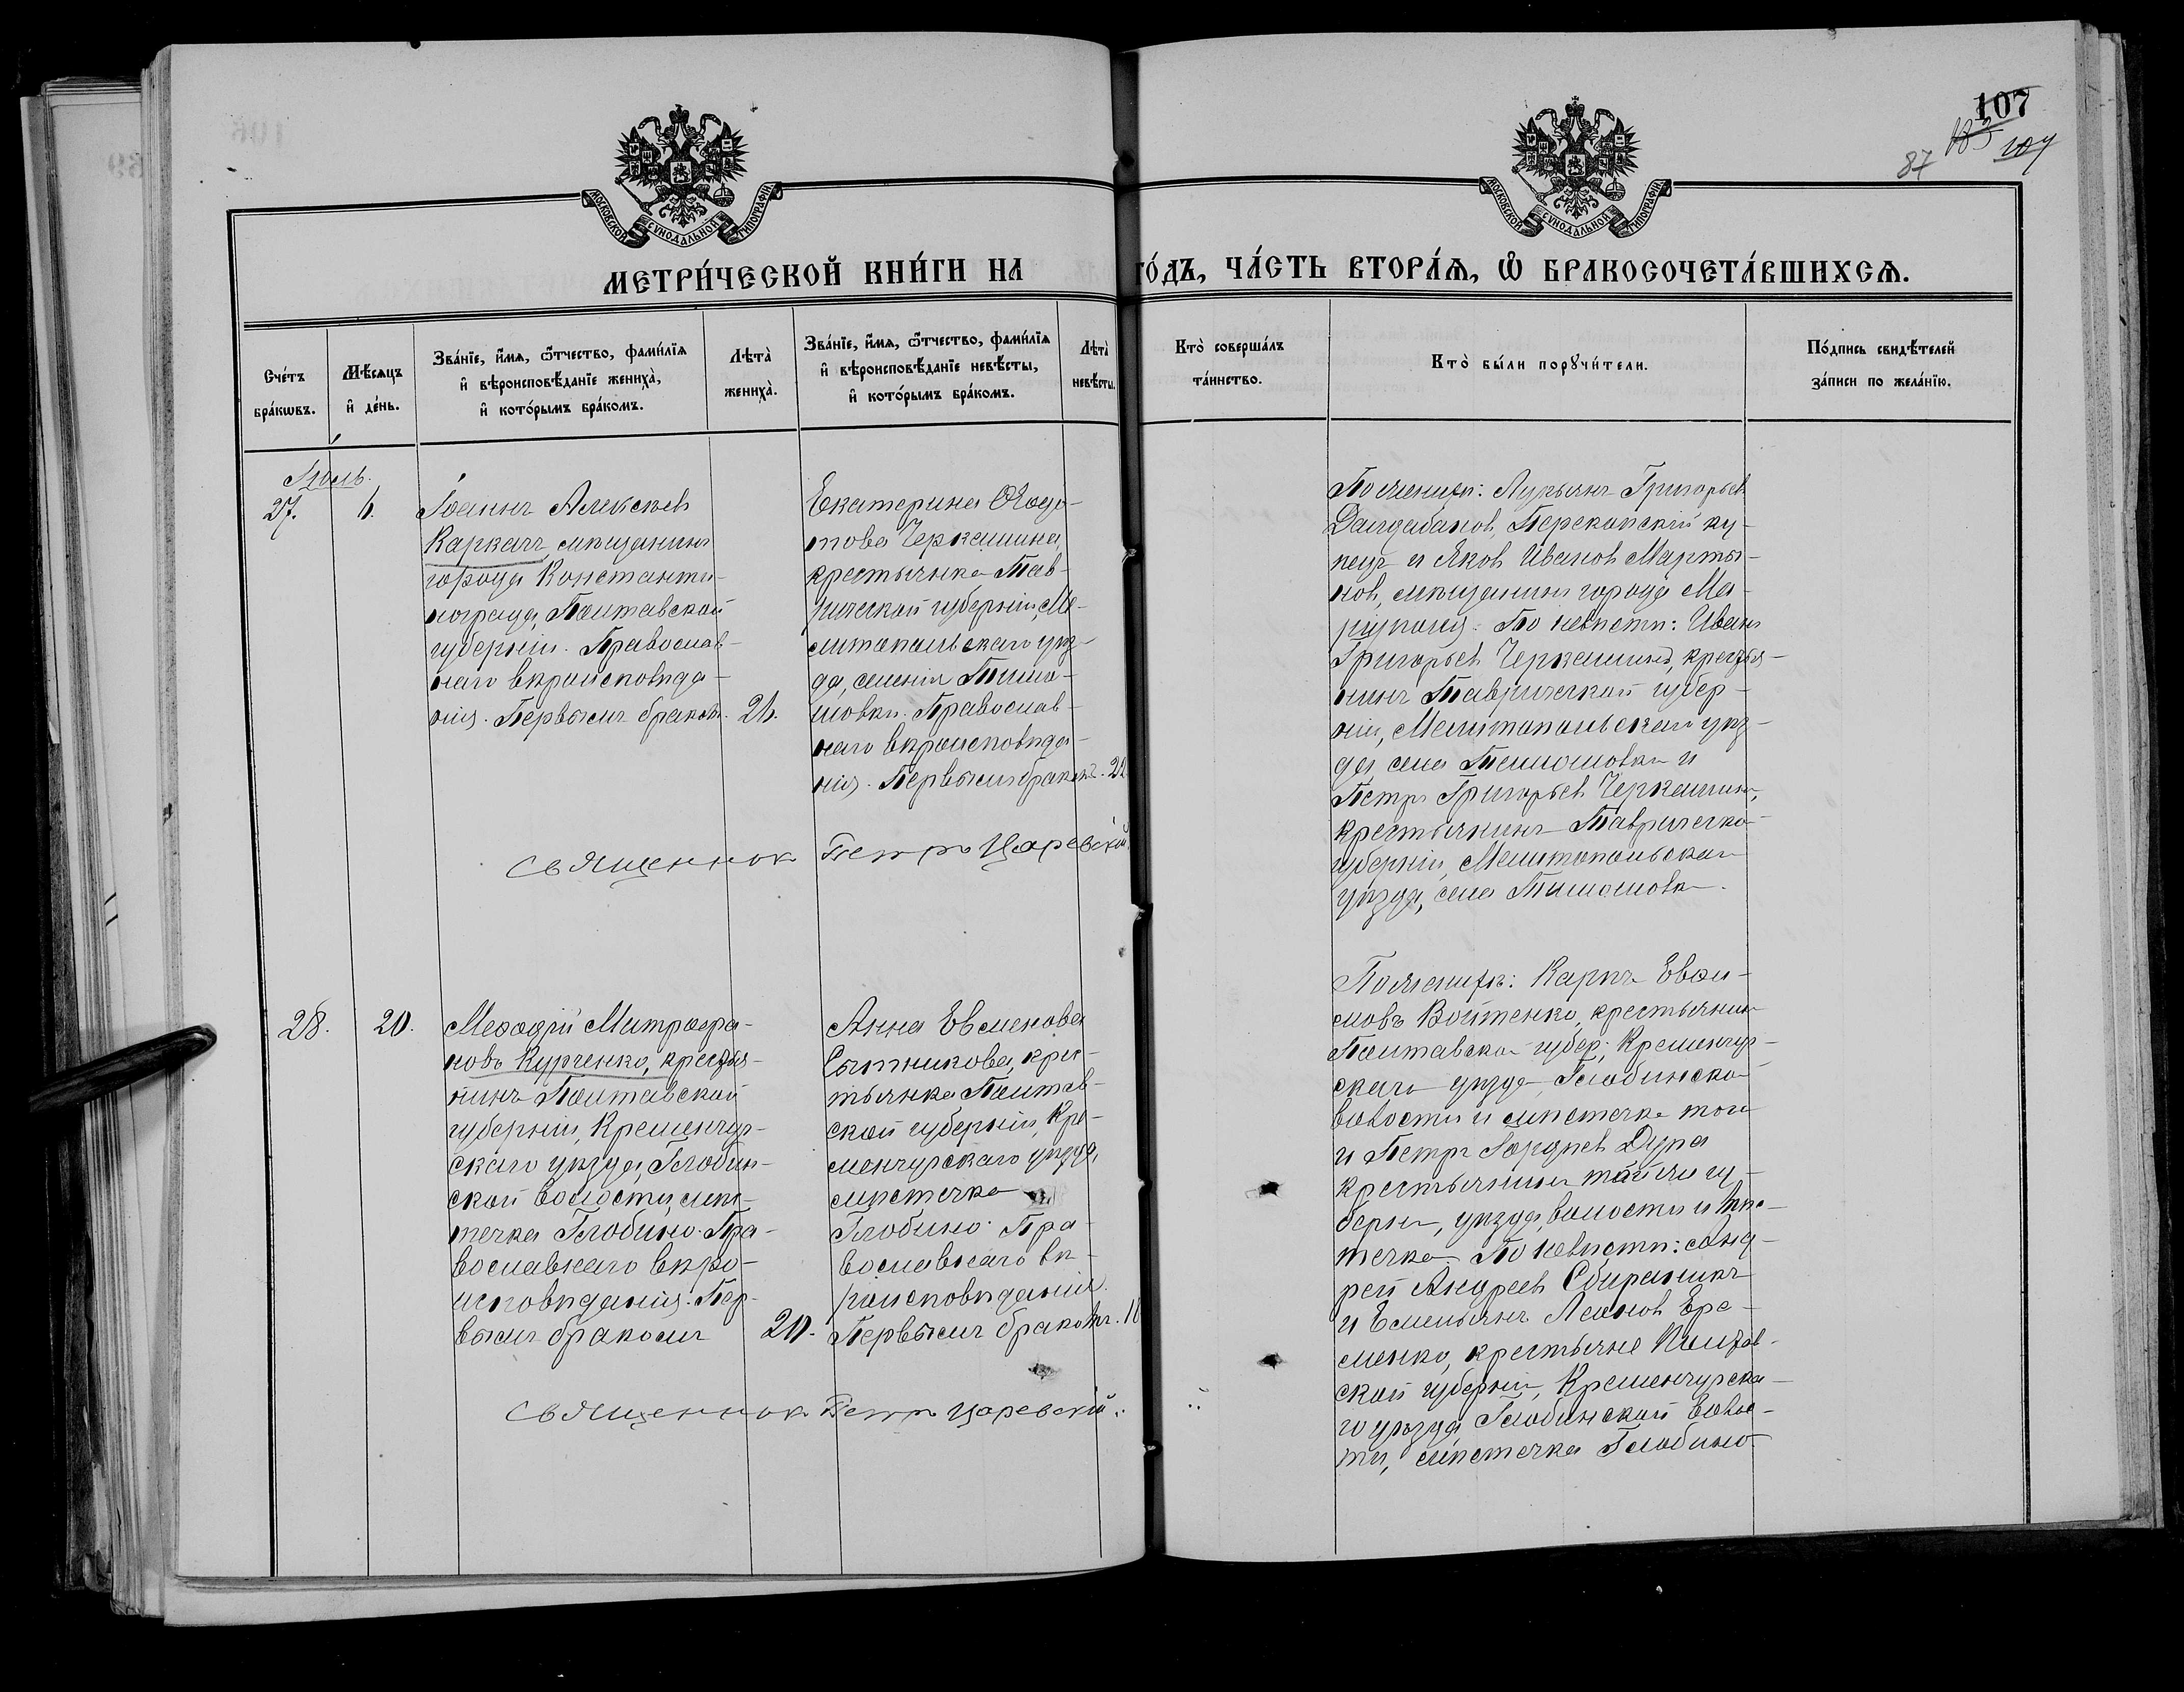 107
103
104
87
МОСКОВСКОЙ СУНОДАЛЬНОЙ ТИПОГРАФІИ
МОСКОВСКОЙ СУНОДАЛЬНОЙ ТИПОГРАФІИ
МЕТРИ́ЧЕСКОЙ КНИ́ГИ НА
ГО́ДЪ, ЧА́СТЬ ВТОРА́Я, Ѡ БРАКОСОЧЕТА́ВШИХСЯ.
Сче́тъ
бра́кѡвъ.
Мѣ́сяцъ
и де́нь.
Зва́нїе, и́мя, ѻ́тчество, фами́лїя
и вѣроисповѣ́данїе жениха̀,
и кото́рымъ бра́комъ.
Лѣта̀
жениха̀.
Зва́нїе, и́мя, ѻ́тчество, фами́лїя
и вѣроисповѣ́данїе невѣ́сты,
и кото́рымъ бра́комъ.
Лѣта̀
невѣ́сты.
Кто̀ соверша́лъ
та́инство.
Кто̀ бы́ли порꙋчи́тели.
По́дпись свидѣ́телей
за́писи по жела́нїю.
Іюль.
27.
6.
Іоаннъ Алексѣевъ
Каркачъ, мѣщанинъ
города Константи-
нограда, Полтавской
губерніи. Православ-
наго вѣроисповѣда-
нія. Первымъ бракомъ.
26.
Екатерина Ѳеодо-
това Черкашина,
крестьянка Тав-
рической губерніи, Ме-
литопольскаго уѣз-
да, селенія Тимо-
шовки. Православ-
наго вѣроисповѣда-
нія. Первымъ бракомъ.
22
Священник Петръ Царевскій.
По женихѣ: Лукьянъ Григорьевъ
Перекопскій ку-
пецъ и Яковъ Ивановъ Марты-
новъ, мѣщанинъ города Ма-
ріуполя. По невѣстѣ: Иванъ
Григорьевъ Черкашинъ, крестья-
нинъ Таврической губер-
ніи, Мелитопольскаго уѣз-
да, села Тимошовки и
Петръ Григорьевъ Черкашинъ,
крестьянинъ Таврической
губерніи, Мелитопольскаго
уѣзда, села Тимошовки.
28.
20.
Меѳодій Митрофа-
новъ Курченко, крестья-
нинъ Полтавской
губерніи, Кременчуг-
скаго уѣзда, Глобин-
ской волости, мѣс-
течка Глобино. Пра-
вославнаго вѣро-
исповѣданія. Пер-
вымъ бракомъ
20.
Анна Евменова
Сытникова, крес-
тьянка Полтав-
ской губерніи, Кре-
менчугскаго уѣзда,
мѣстечка
Глобино. Пра-
вославнаго вѣ-
роисповѣданія.
Первымъ бракомъ.
18
Священник Петръ Царевскій.
По женихѣ: Карпъ
Войтенко, крестьянинъ
Полтавской губер., Кременчуг-
скаго уѣзда Глобинской
волости и мѣстечка того
и Петръ Гордѣевъ Дура
крестьянинъ той же гу-
берніи, уѣзда, волости и мѣс-
течка. По невѣстѣ: Анд-
рей Андреевъ Сбиранникъ
и Емельянъ Леоновъ Ере-
менко, крестьяне Полтав-
ской губерніи, Кременчугска-
го уѣзда, Глобинской волос-
ти, мѣстечка Глобино.